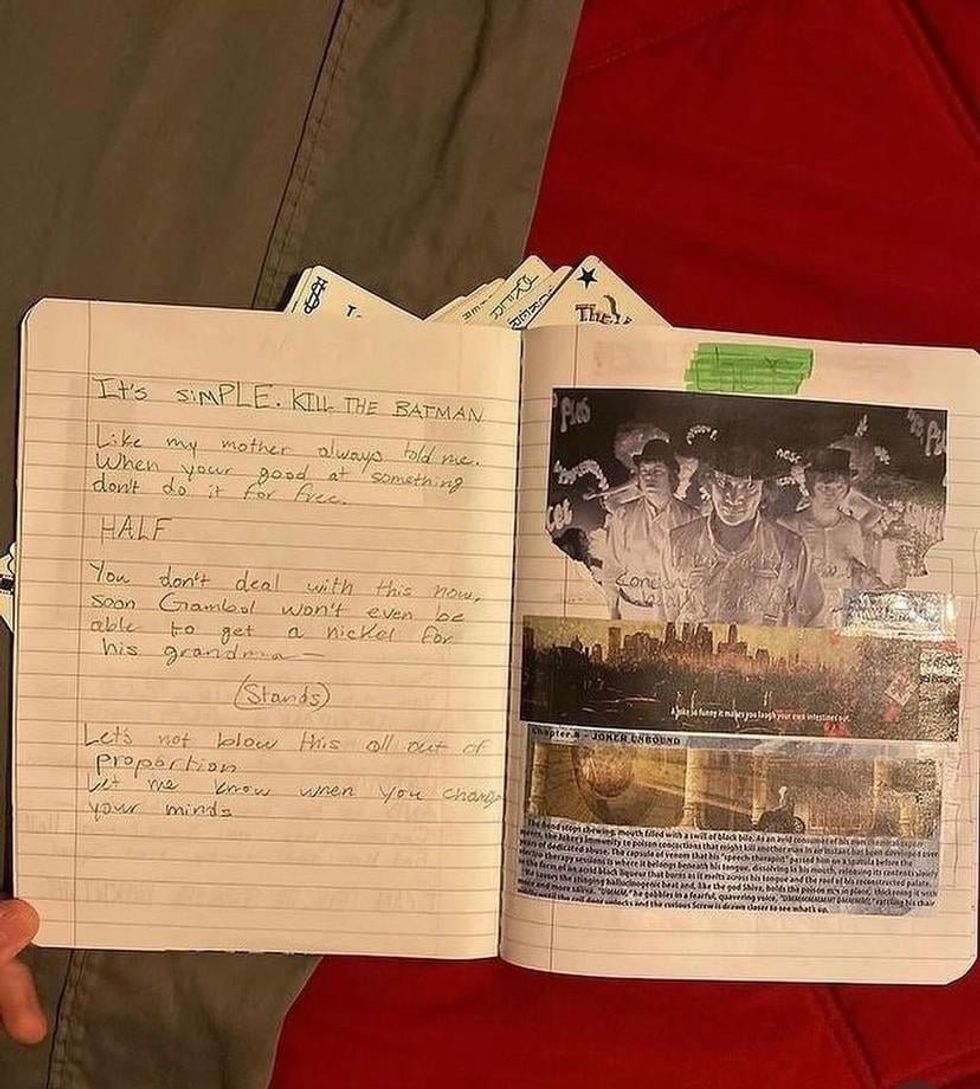 It's SiMPLE. KILL THE BATMAN
Like my mother always told me.
When your good at something
don't do it for free.
HALF
You don't deal with this now,
soon Gambol won't even be
able to get a nickel for
his grandma—
(Stands)
Let's not blow this all out of
proportion
Let me know when you change
your minds
JOKER
The
A joke so funny it makes you laugh your own intestines out.
Chapter 8 - JOKER UNBOUND
The fiend stops chewing, mouth filled with a swirl of black bile. As an avid consumer of his own chemical
the Joker's immunity to poison concoctions that might kill another man in an instant has been developed over
years of dedicated abuse. The capsule of venom that his "speech therapist" passed him on a spatula before the
electro-therapy sessions is where it belongs beneath his tongue, dissolving in his mouth, releasing its contents slowly
in the form of an acrid black liqueur that burns as it melts across his tongue and the roof of his reconstructed palate.
He savors the stinging hallucinogenic heat and, like the god Shiva, holds the poison in place, thickening it with
more and more saliva. "UMMM," he gobbles in a fearful, quavering voice, rattling his chair
until the cell door unlocks and the curious Screw is drawn closer to see what's up.